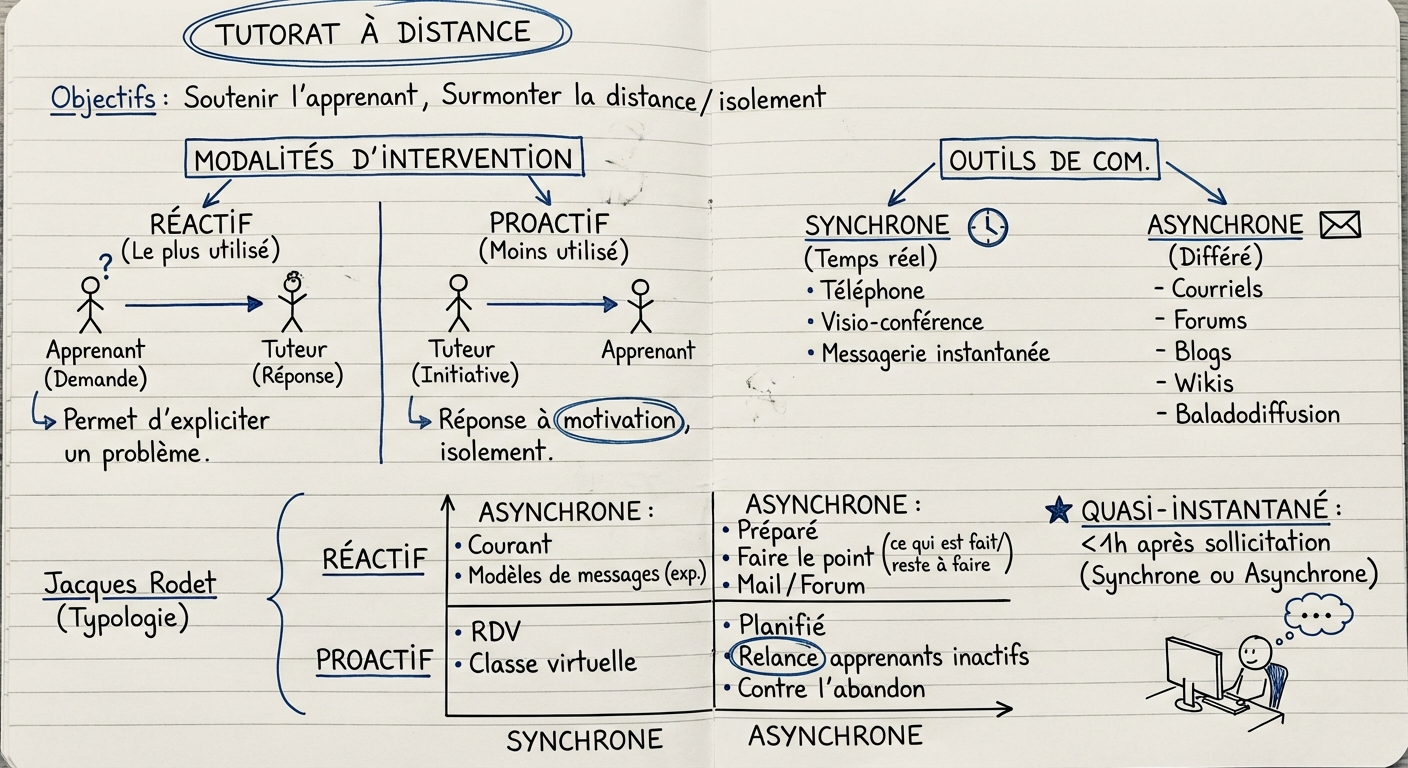 TUTORAT À DISTANCE
Objectifs : Soutenir l'apprenant, Surmonter la distance/isolement
MODALITÉS D'INTERVENTION
RÉACTIF
(Le plus utilisé)
?
Apprenant
(Demande)
Tuteur
(Réponse)
Permet d'expliciter
un problème.
PROACTIF
(Moins utilisé)
Tuteur
(Initiative)
Apprenant
Réponse à motivation,
isolement.
OUTILS DE COM.
SYNCHRONE
(Temps réel)
• Téléphone
• Visio-conférence
• Messagerie instantanée
ASYNCHRONE
(Différé)
- Courriels
- Forums
- Blogs
- Wikis
- Baladodiffusion
Jacques Rodet
(Typologie)
RÉACTIF
ASYNCHRONE :
• Courant
• Modèles de messages (exp.)
ASYNCHRONE :
• Préparé
• Faire le point (ce qui est fait/
reste à faire)
• Mail/Forum
PROACTIF
• RDV
• Classe virtuelle
• Planifié
• Relance apprenants inactifs
• Contre l'abandon
SYNCHRONE
ASYNCHRONE
★ QUASI-INSTANTANÉ :
<1h après sollicitation
(Synchrone ou Asynchrone)
...